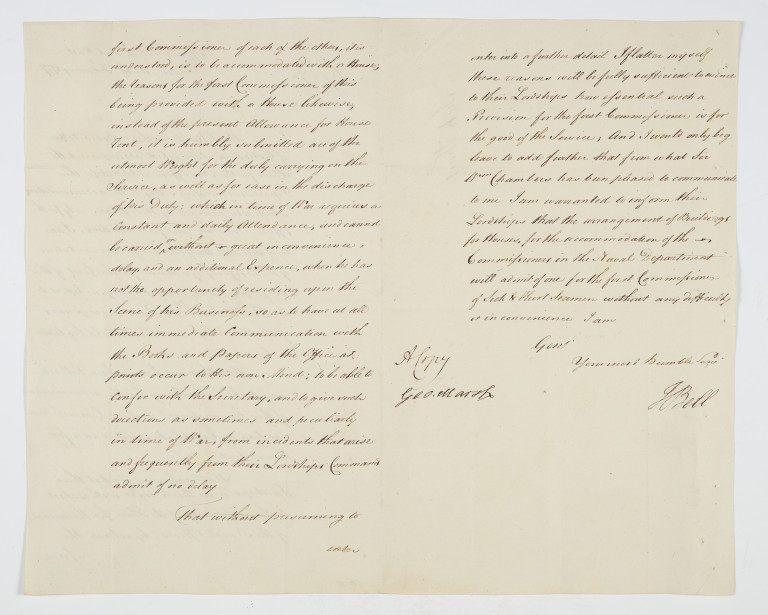 first Commissioner of each of the others, it is
understood, is to be accommodated with a House,
the reasons for the first Commissioner of this
being provided with a House likewise,
instead of the present Allowance for House
Rent, it is humbly submitted are of the
utmost Weight for the duly carrying on the
Service, as well as for ease in the discharge
of his Duty; which in time of War requires a
Constant and daily Attendance, and cannot
be carried on without great inconvenience,
delay, and an additional Expence, when he has
not the opportunity of residing upon the
Scene of his Business, so as to have at all
times immediate Communication with
the Books and Papers of the Office as
points occur to his own Mind; to be able to
Confer with the Secretary, and to give such
directions as sometimes and peculiarly
in time of War, from incidents that arise
and frequently from their Lordships Command
admit of no delay
That without presuming to
enter
enter into a further detail I flatter myself
these reasons will be fully sufficient to evince
to their Lordships how essential such a
Provision for the first Commissioner is for
the good of the Service; And I would only beg
leave to add further that from what Sir
Wm. Chambers has been pleased to communicate
to me I am warranted to inform their
Lordships that the arrangement of Buildings
for Houses, for the accommodation of the
Commissioners in the Naval Department
will admit of one for the first Commissioner
of Sick & Hurt Seamen without any difficulty
or inconvenience I am
Gent
Your most humble Servt
J Bell
A Copy
Geo. Marsh